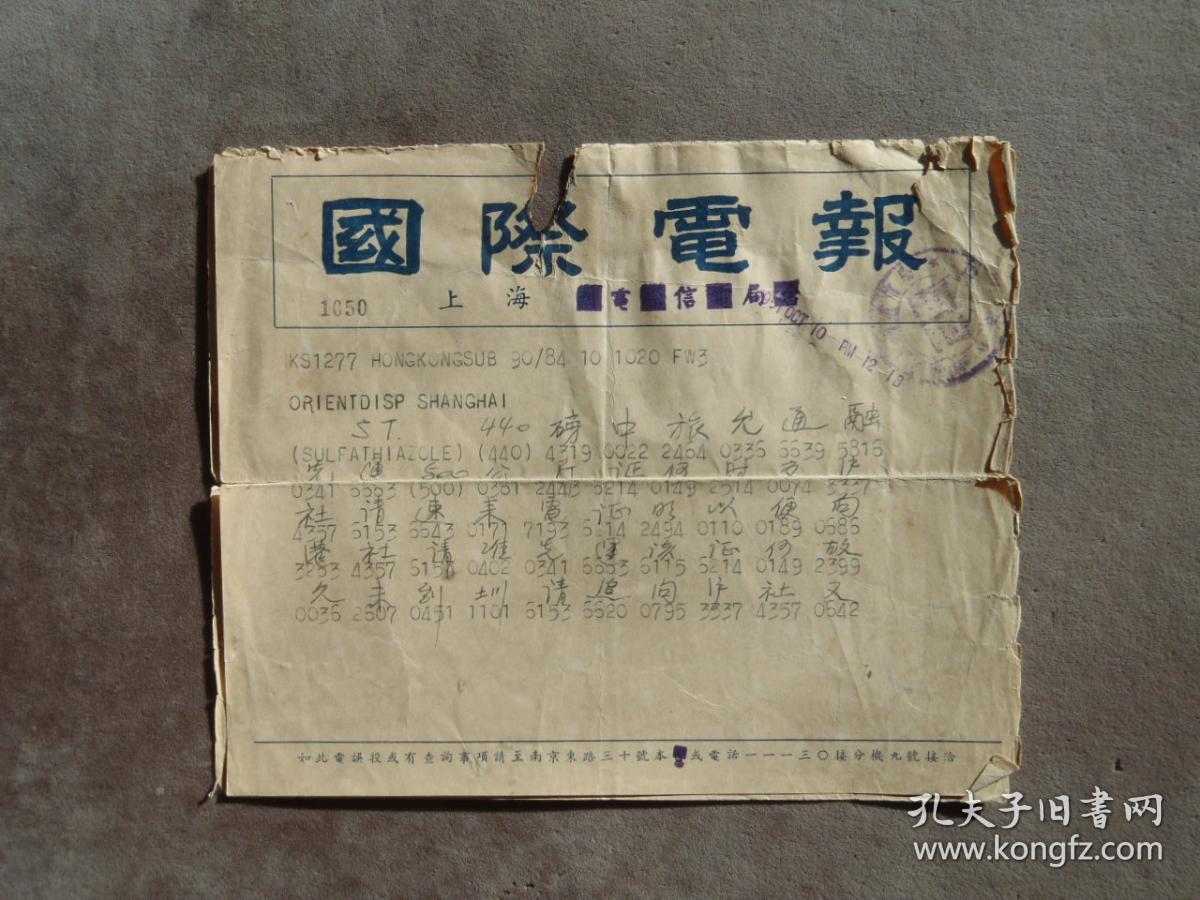 國際電報
1050 上海 電信局
OCT 10 PM 12-13
KS1277 HONGKONGSUB 90/84 10 1020 FW3
ORIENTDISP SHANGHAI
ST. 440 磅 中 旅 允 通 融
(SULFATHIAZOLE) (440) 4319 0022 2464 0336 6639 5816
先 運 500 公 斤 证 何 时 及 沪
0341 6663 (500) 0361 2443 6214 0149 2514 0074 3337
社 请 速 来 電 证 明 以 便 向
4357 6153 6643 0171 7193 6214 2494 0110 0189 0686
港 社 请 准 先 運 该 证 何 故
3263 4357 6153 0402 0341 6663 6115 6214 0149 2399
久 未 到 圳 请 迳 向 沪 社 又
0036 2607 0451 1101 6153 6620 0795 3337 4357 0642
如此電誤投或有查詢事項請至南京東路三十號本 或電話一一一三〇接分機九號接洽
孔夫子旧書网
www.kongfz.com